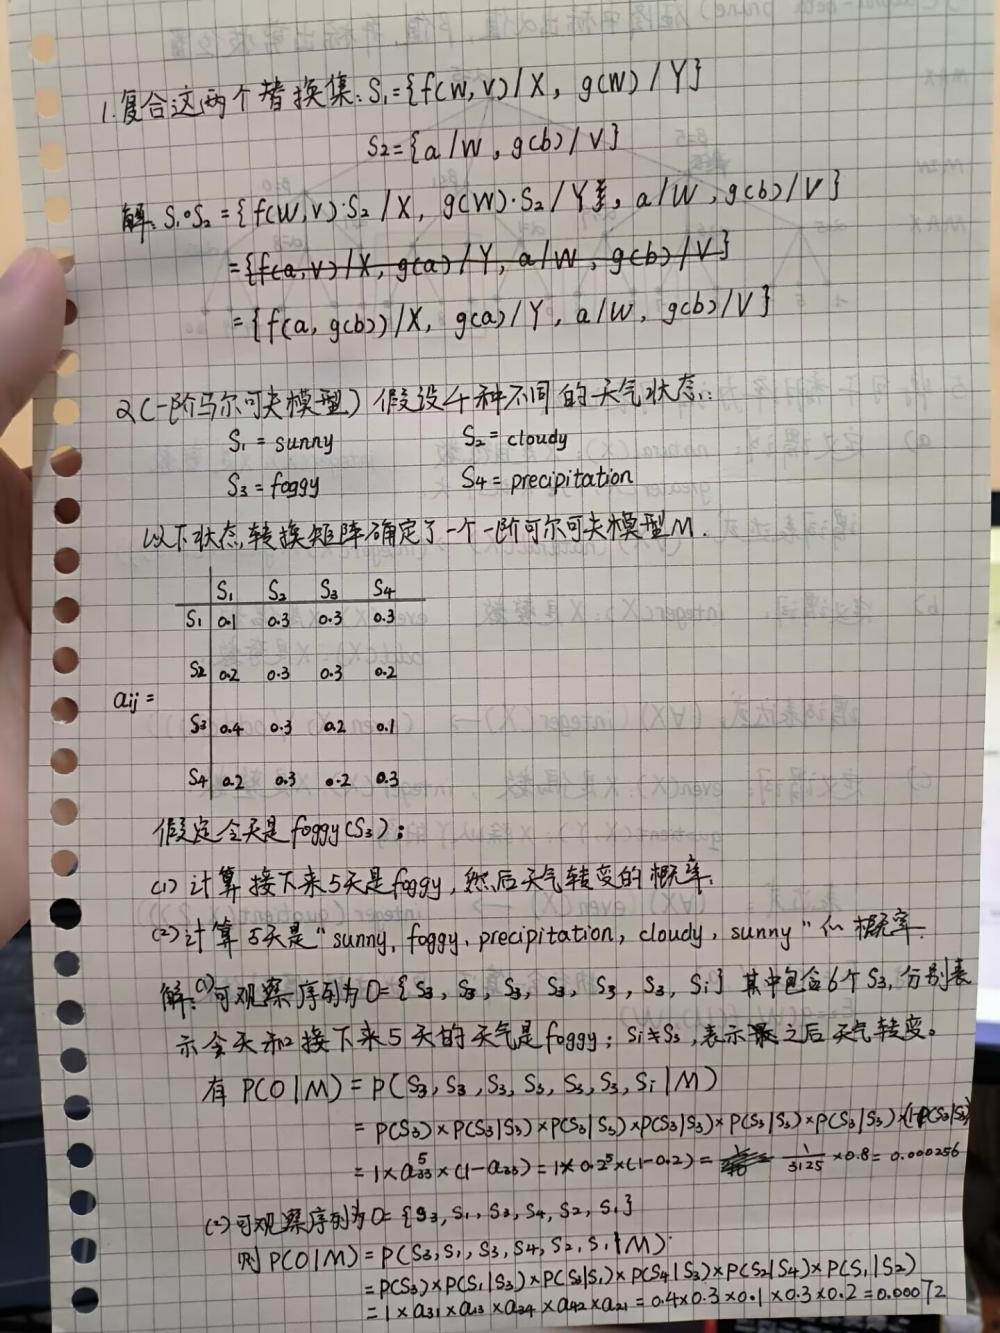 1.复合这两个替换集: S₁={f(W,V)/X, g(W)/Y}
S₂={a/W, g(b)/V}
解: S₁∘S₂={f(W,V)·S₂/X, g(W)·S₂/Y, a/W, g(b)/V}
={f(a,V)/X, g(a)/Y, a/W, g(b)/V}
={f(a, g(b))/X, g(a)/Y, a/W, g(b)/V}
2(一阶马尔可夫模型) 假设4种不同的天气状态:
S₁=sunny S₂=cloudy
S₃=foggy S₄=precipitation
以下状态转换矩阵确定了一个一阶可尔可夫模型M.
S₁ S₂ S₃ S₄
S₁ 0.1 0.3 0.3 0.3
S₂ 0.2 0.3 0.3 0.2
aij=
S₃ 0.4 0.3 0.2 0.1
S₄ 0.2 0.3 0.2 0.3
假定今天是foggy(S₃):
(1) 计算接下来5天是foggy,然后天气转变的概率.
(2)计算5天是"sunny, foggy, precipitation, cloudy, sunny"的概率.
解:(1)可观察序列为O={S₃, S₃, S₃, S₃, S₃, S₃, Si} 其中包含6个S₃,分别表
示今天和接下来5天的天气是foggy; Si≠S₃,表示之后天气转变。
有 P(O|M)=P(S₃,S₃,S₃,S₃,S₃,S₃,Si|M)
=P(S₃)×P(S₃|S₃)×P(S₃|S₃)×P(S₃|S₃)×P(S₃|S₃)×P(S₃|S₃)×(1-P(S₃|S₃)
=1×a₃₃⁵×(1-a₃₃)=1×0.2⁵×(1-0.2)= 1/3125 ×0.8=0.000256
(2)可观察序列为O={S₃,S₁,S₃,S₄,S₂,S₁}
则P(O|M)=P(S₃,S₁,S₃,S₄,S₂,S₁|M)
=P(S₃)×P(S₁|S₃)×P(S₃|S₁)×P(S₄|S₃)×P(S₂|S₄)×P(S₁|S₂)
=1×a₃₁×a₁₃×a₃₄×a₄₂×a₂₁=0.4×0.3×0.1×0.3×0.2=0.00072